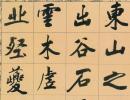 東山之
出谷石
雲木虛
經變